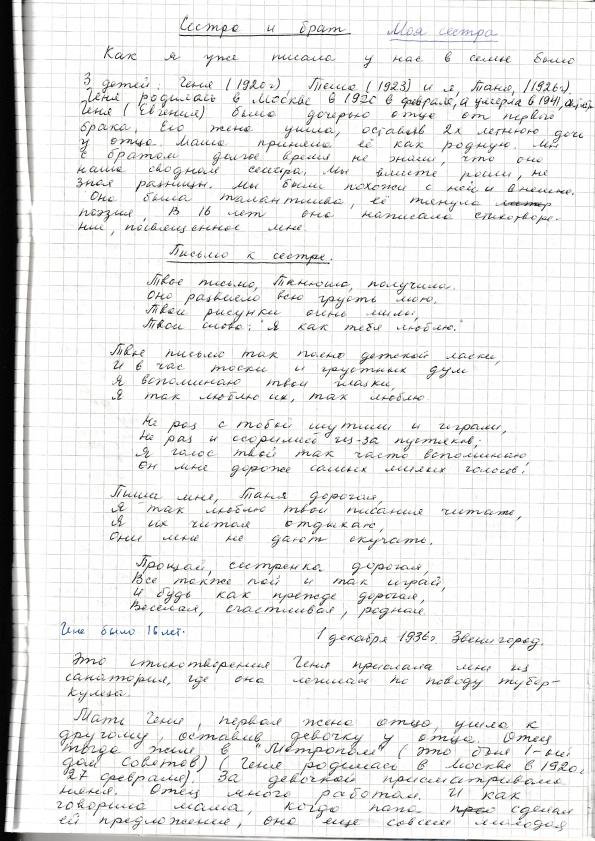 Сестра и брат Моя сестра
Как я уже писала у нас в семье было
3 детей. Геня (1920г), Тема (1923) и я, Таня, (1926г).
Геня родилась в Москве в 1920 в феврале, а умерла в 1941,
Геня (Евгения) была дочерью отца от первого
брака. Его жена ушла, оставив 2х летнюю дочь
у отца. Мама приняла её как родную. Мы
с братом долгое время не знали, что она
наша сводная сестра. Мы вместе росли, не
зная разницы. Мы были похожи с ней и внешне.
Она была талантлива, её тянуло
поэзия, В 16 лет она написала стихотворе-
ние, посвещенное мне.
Письмо к сестре.
Твое письмо, Танюша, получила.
Оно развеяло всю грусть мою.
Твои рисунки очень милы,
Твои слова: "Я как тебя люблю."
Твое письмо так полно детской ласки,
И в час тоски и грустных дум
Я вспоминаю твои глазки,
Я так люблю их, так люблю.
Не раз с тобой шутили и играли,
Не раз и ссорились из-за пустяков;
Я голос твой так часто вспоминаю
Он мне дороже самых милых голосов!
Пиши мне, Таня дорогая,
Я так люблю твои писания читать,
Я их читая отдыхаю,
Они мне не дают скучать.
Прощай, сестренка дорогая,
Все также пой и так играй,
И будь как прежде дорогая,
Веселая, счастливая, родная.
Гене было 16 лет. 1 декабря 1936г. Звенигород.
Это стихотворения Геня прислала мне из
санатория, где она лечилась по поводу тубер-
кулеза.
Мать Гени, первая жена отца, ушла к
другому, оставив девочку у отца. Отец
тогда жил в "Метрополе" (это был 1-ый
дом Советов) (Геня родилась в Москве в 1920г
27 февраля). За девочкой присматривала
няня. Отец много работал. И как
говорила мама, когда папа сделал
ей предложение, она еще совсем молодая